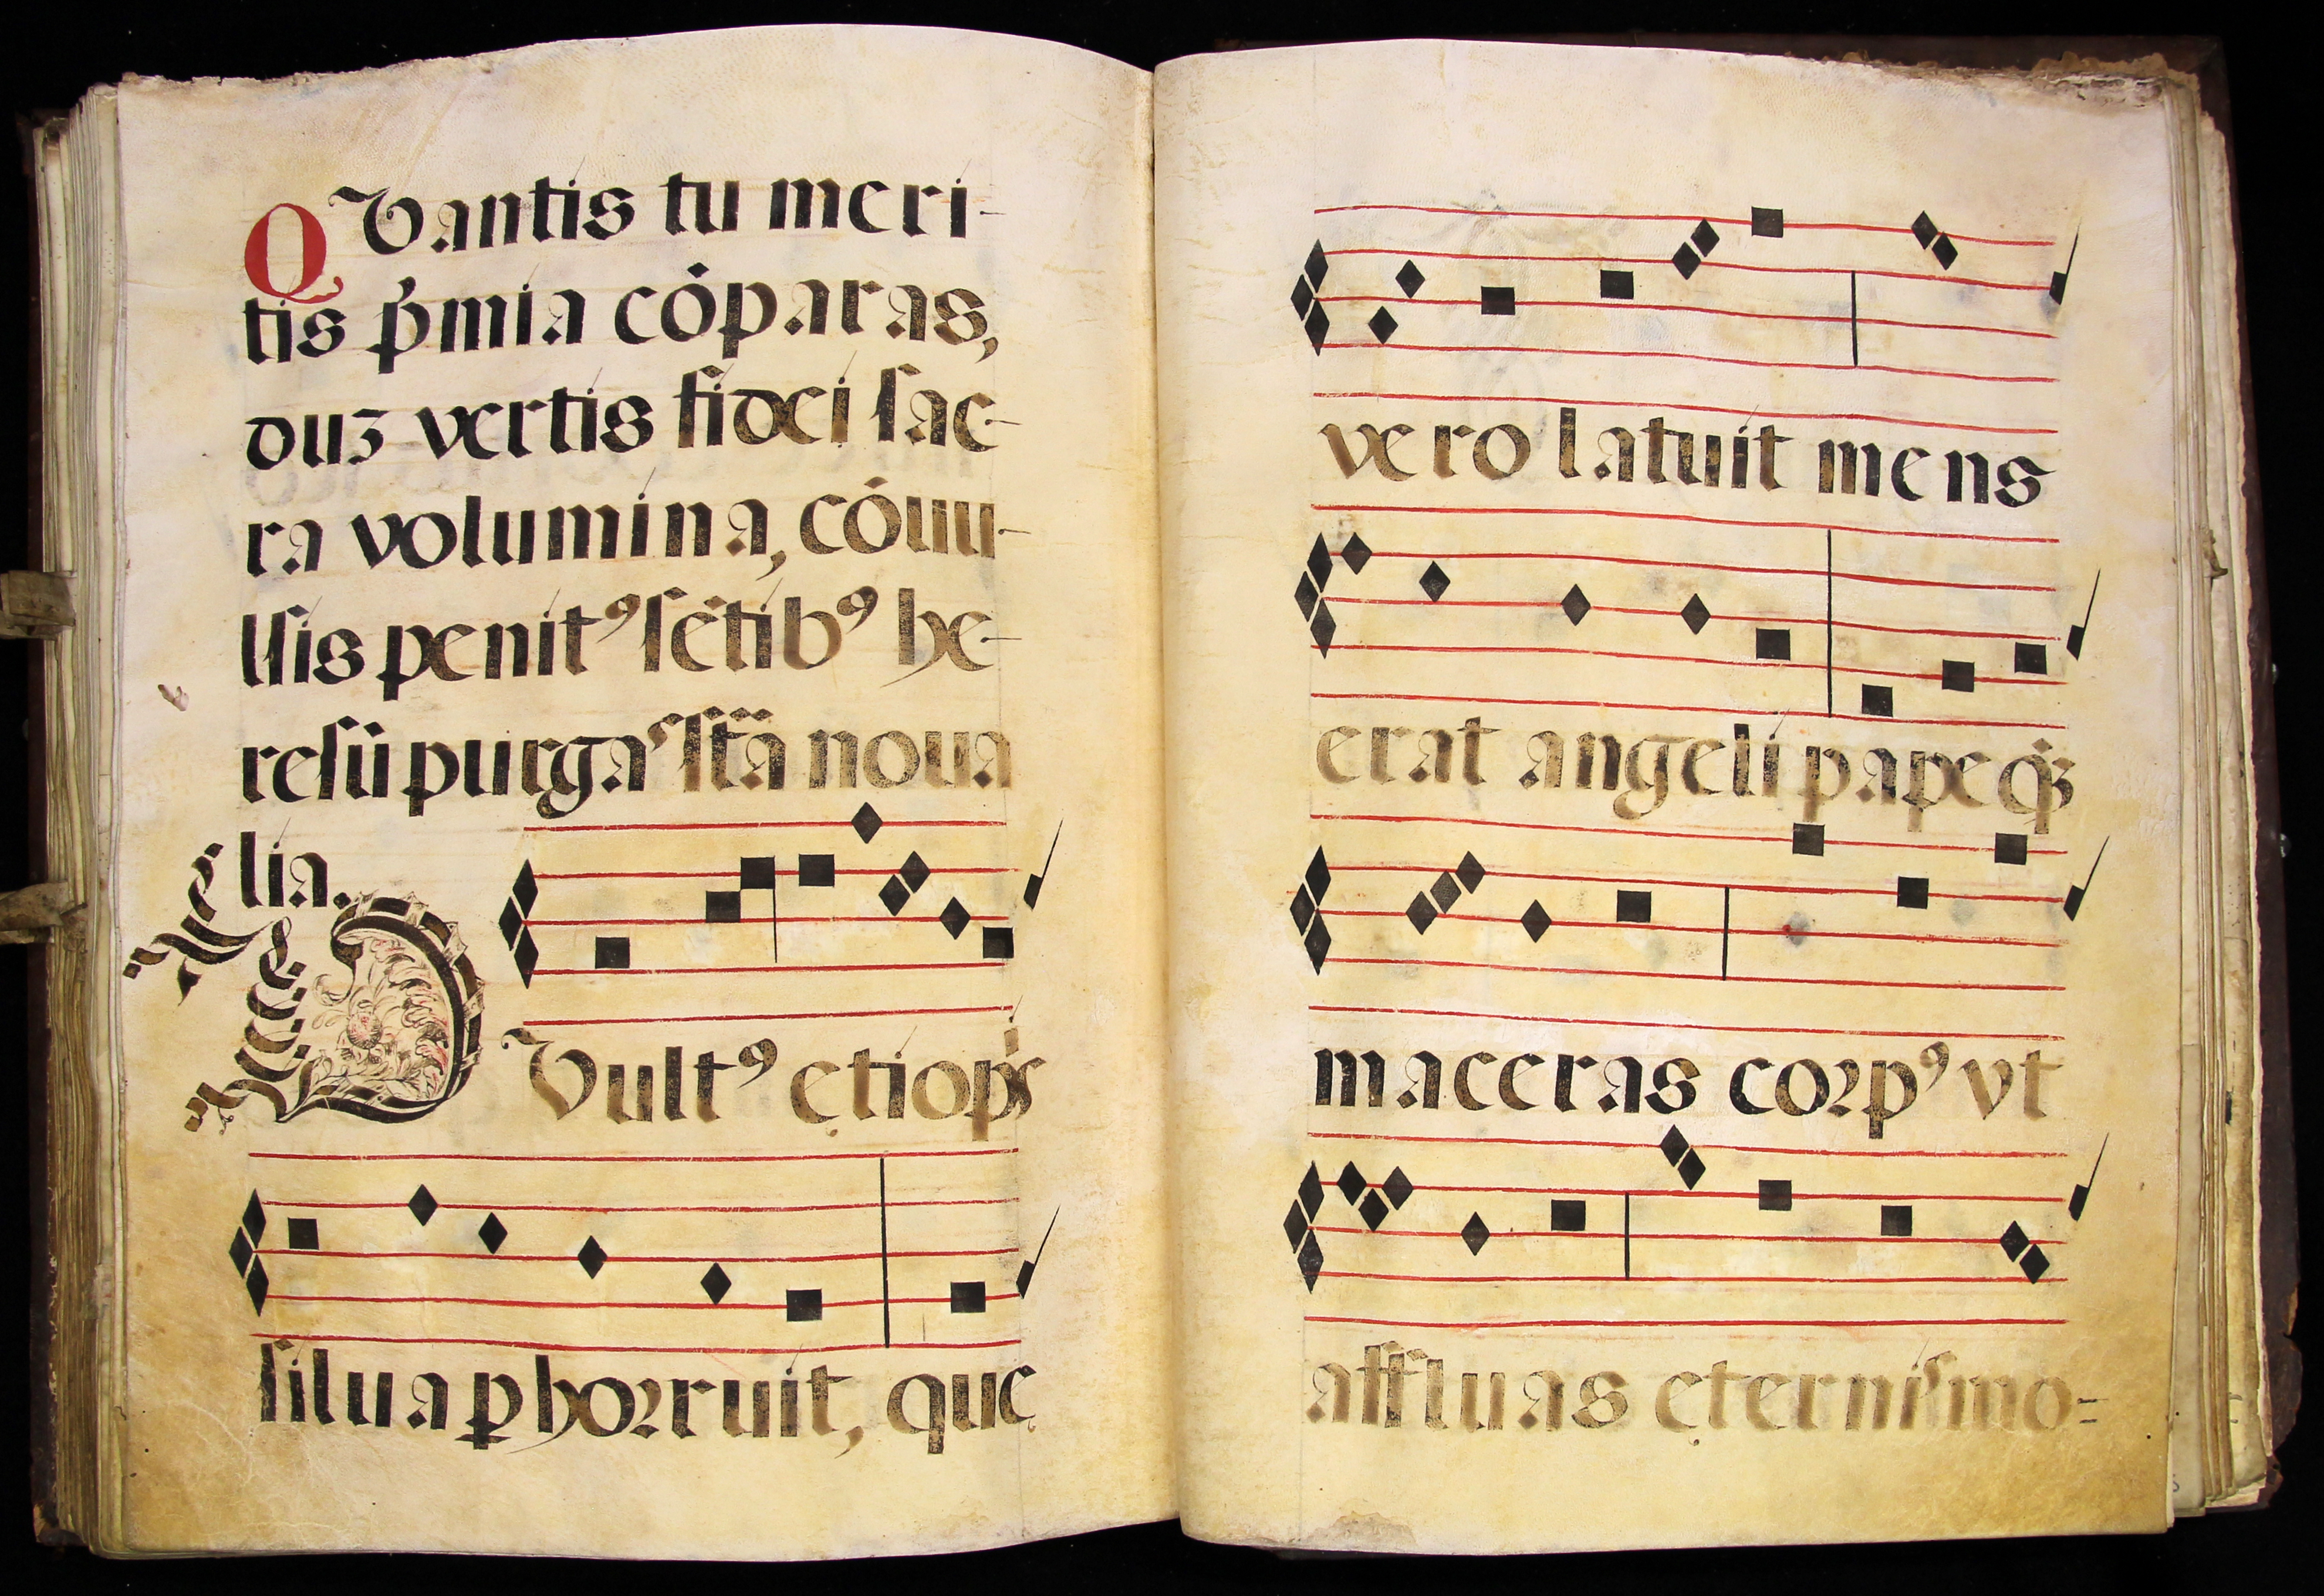 QVantis tu meri-
tis p̄mia cōparas,
duꝫ vertis fidei sac-
ra volumina, cōuu-
lsis penitꝰ sētibꝰ he-
resū purgas stā noua
lia.
DVultꝰ ętiopis
silua ꝑhoꝛruit, quę
vero latuit mens
erat angeli papeqꝫ
maceras coꝛpꝰ vt
affluas ęternis mo=